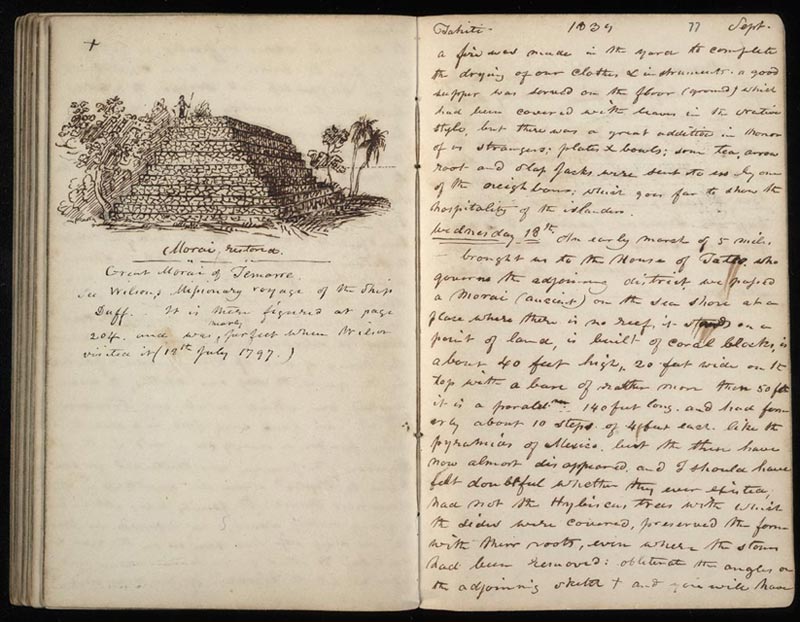 +
Morai, restored.
Great Morai of Temarre
See Wilson's Missionary voyage of the Ship
Duff. It is there figured at page
204. and was, nearly perfect when Wilson
visited it (12th July 1797.)
Tahiti - 1839 77 Sept.
a fire was made in the yard to complete
the drying of our clothes & instruments. a good
supper was served on the floor (ground) which
had been covered with leaves in the native
style, but there was a great addition in honor
of us strangers; plates & bowls; some tea, arrow
root and slap jacks were sent to us by one
of the neighbours, which goes far to show the
hospitality of the islanders.
Wednesday 18th An early march of 5 mils.
- brought us to the House of who
governs the adjoining district we passed
a Morai (ancient) on the sea shore at a
place where there is no reef, it stands on a
point of land, is built of coral blocks, is
about 40 feet high, 20 feet wide on the
top with a base of rather more than 50 ft
it is a 140 feet long. and had form
erly about 10 steps of 4 feet each. like the
pyramids of Mexico. but the these have
now almost disappeared, and I should have
felt doubtful whether they ever existed,
had not the Hybiscus trees with which
the sides were covered, preserved the form
with their roots, even where the stones
had been removed: obliterate the angles on
the adjoining sketch + and you will have